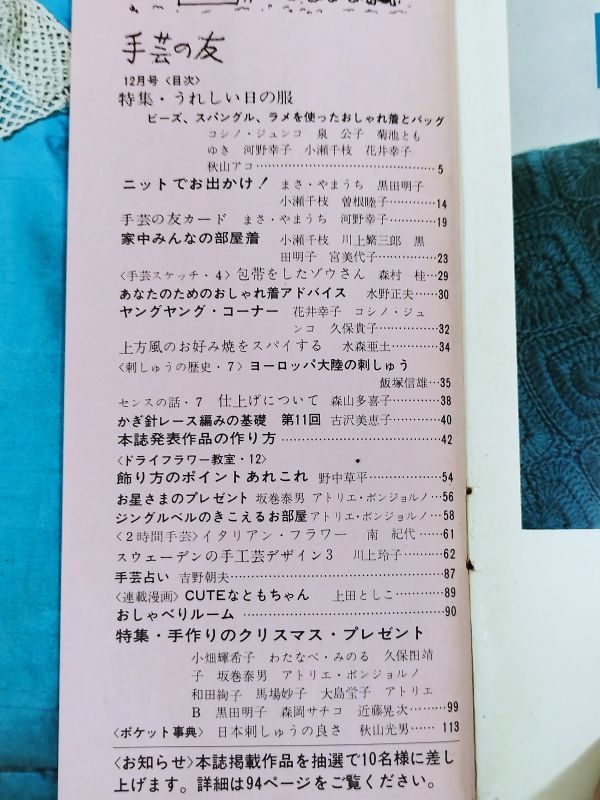 手芸の友
12月号〈目次〉
特集・うれしい日の服
ビーズ、スパングル、ラメを使ったおしゃれ着とバッグ
コシノ・ジュンコ 泉 公子 菊池とも
ゆき 河野幸子 小瀬千枝 花井幸子
秋山アコ……5
ニットでお出かけ! まさ・やまうち 黒田明子
小瀬千枝 曽根睦子……14
手芸の友カード まさ・やまうち 河野幸子……19
家中みんなの部屋着 小瀬千枝 川上繁三郎 黒
田明子 宮美代子……23
〈手芸スケッチ・4〉包帯をしたゾウさん 森村 桂…29
あなたのためのおしゃれ着アドバイス 水野正夫……30
ヤングヤング・コーナー 花井幸子 コシノ・ジュ
ンコ 久保貴子……32
上方風のお好み焼をスパイする 水森亜土……34
〈刺しゅうの歴史・7〉ヨーロッパ大陸の刺しゅう
飯塚信雄…35
センスの話・7 仕上げについて 森山多喜子……38
かぎ針レース編みの基礎 第11回 古沢美恵子……40
本誌発表作品の作り方……42
〈ドライフラワー教室・12〉
飾り方のポイントあれこれ 野中草平……54
お星さまのプレゼント 坂巻泰男 アトリエ・ボンジョルノ…56
ジングルベルのきこえるお部屋 アトリエ・ボンジョルノ…58
〈2時間手芸〉イタリアン・フラワー 南 紀代……61
スウェーデンの手工芸デザイン3 川上玲子……62
手芸占い 吉野朝夫……87
〈連載漫画〉CUTEなともちゃん 上田としこ……89
おしゃべりルーム……90
特集・手作りのクリスマス・プレゼント
小畑輝希子 わたなべ・みのる 久保田靖
子 坂巻泰男 アトリエ・ボンジョルノ
和田絢子 馬場妙子 大島堂子 アトリエ
B 黒田明子 森岡サチコ 近藤晃次……99
〈ポケット事典〉日本刺しゅうの良さ 秋山光男……113
〈お知らせ〉本誌掲載作品を抽選で10名様に差し
上げます。詳細は94ページをご覧ください。